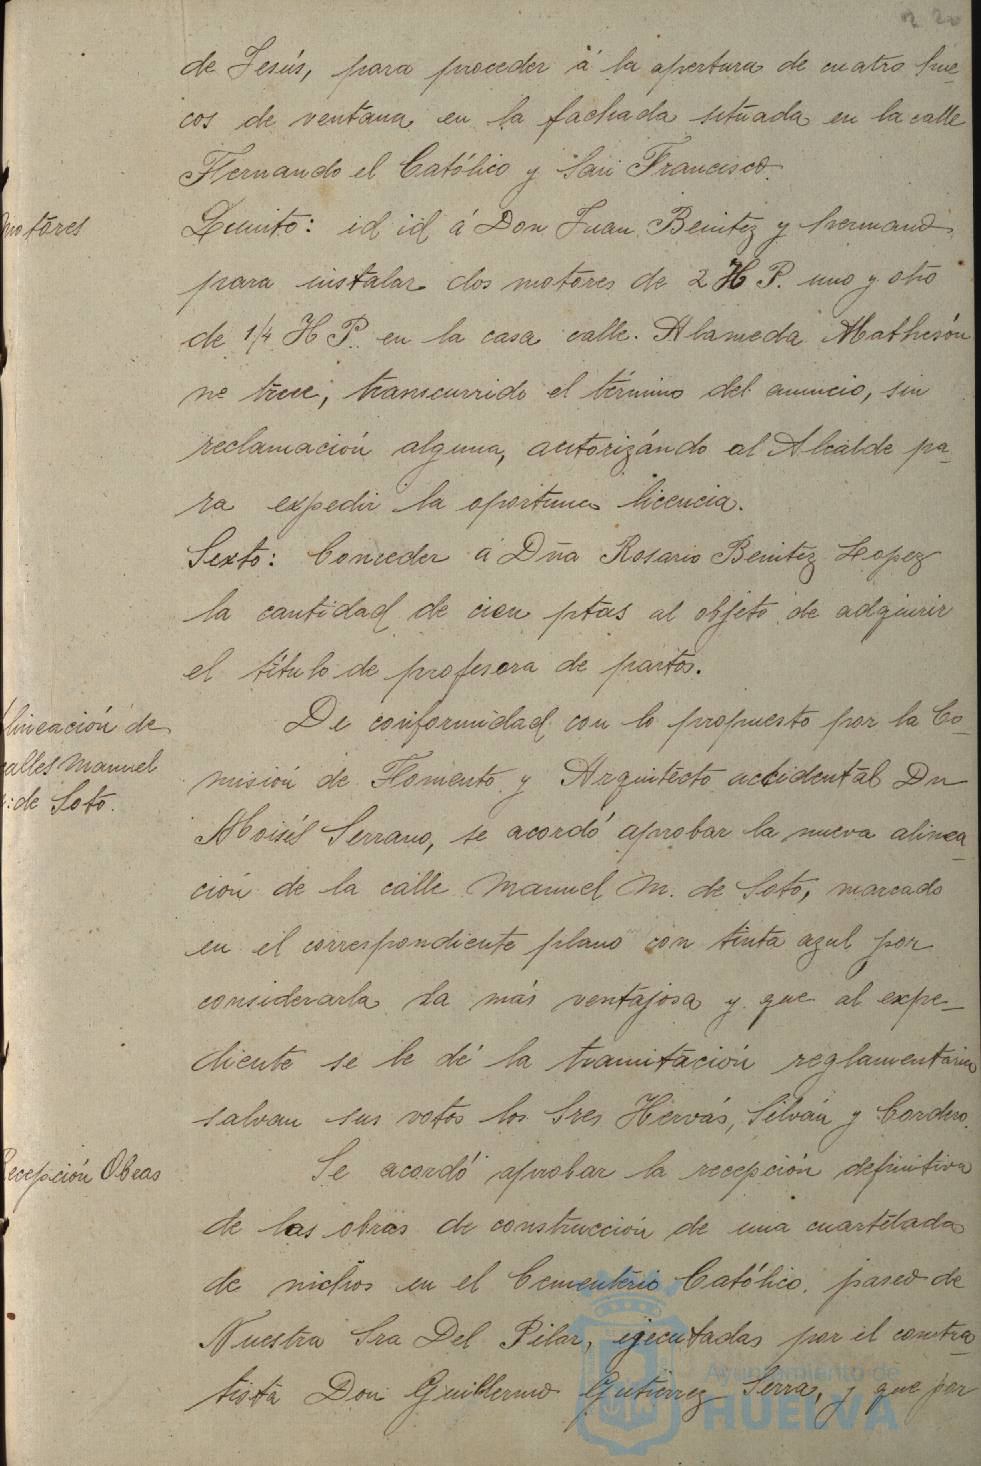 de Jesús, para proceder á la apertura de cuatro hue-
cos de ventana en la fachada situada en la calle
Fernando el Católico y San Francisco.
motores
Quinto: id id á Don Juan Benitez y hermano
para instalar dos motores de 2 H P. uno y otro
de 1/4 H P. en la casa calle. Alameda Mathesón
nº trece, transcurrido el término del anuncio, sin
reclamación alguna, autorizándo al Alcalde pa-
ra expedir la oportuna licencia.
Sexto: Conceder á Dña Rosario Benitez Lopez
la cantidad de cien ptas al objeto de adquirir
el título de profesora de partos.
lineación de
calles Manuel
de Soto.
De conformidad con lo propuesto por la Co-
misión de Fomento y Arquitecto accidental Dn
Moisés Serrano, se acordó aprobar la nueva alinea-
ción de la calle Manuel M. de Soto, marcado
en el correspondiente plano con tinta azul por
considerarla la más ventajosa y que al expe-
diente se le dé la tramitación reglamentaria
salvan sus votos los Sres Hervás, Silván y Cordero.
Recepción Obras
Se acordó aprobar la recepción definitiva
de las obras de construcción de una cuartelada
de nichos en el Cementerio Católico, paseo de
Nuestra Sra Del Pilar, ejecutadas por el contra-
tista Don Guillermo Gutierrez Serra, y que por
Ayuntamiento de
HUELVA